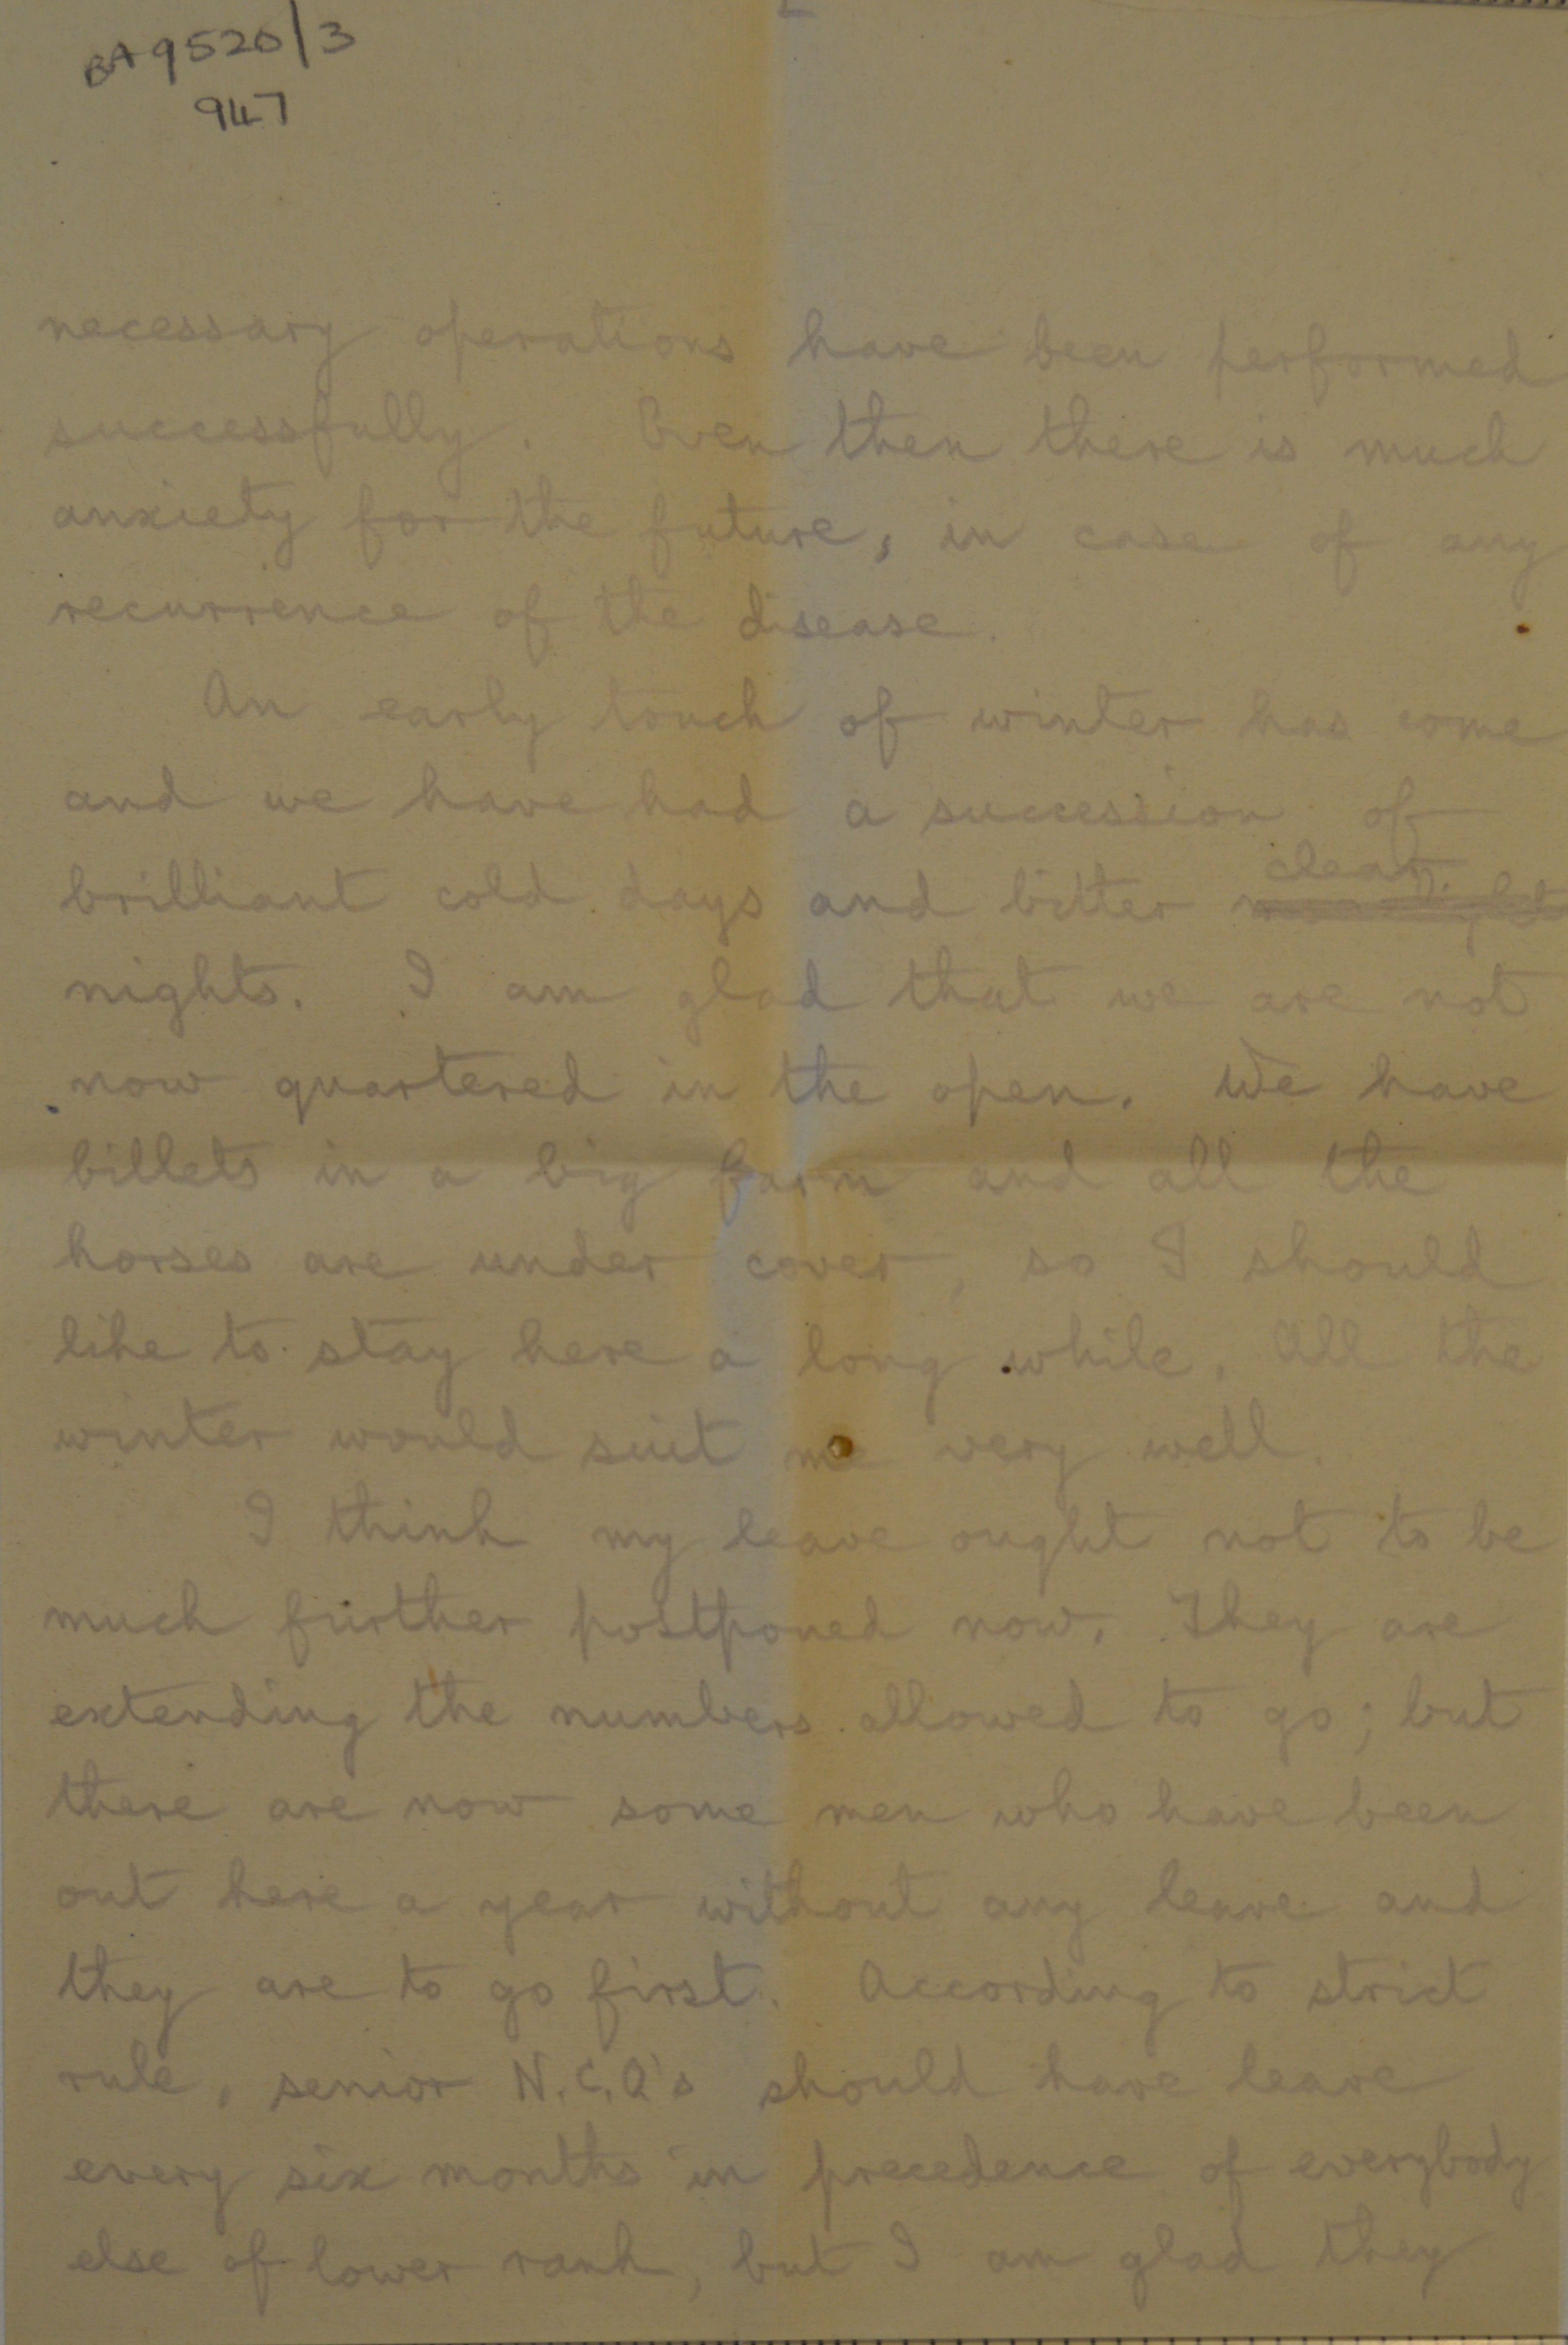 BA9520/3
947
necessary operations have been performed
successfully. Even then there is much
anxiety for the future, in case of any
recurrence of the disease.
An early touch of winter has come
and we have had a succession of
clear
brilliant cold days and bitter moonlight
nights. I am glad that we are not
now quartered in the open. We have
billets in a big farm and all the
horses are under cover, so I should
like to stay here a long while. All the
winter would suit me very well.
I think my leave ought not to be
much further postponed now. They are
extending the numbers allowed to go; but
there are now some men who have been
out here a year without any leave and
they are to go first. According to strict
rule, senior N.C.O's should have leave
every six months in precedence of everybody
else of lower rank, but I am glad they